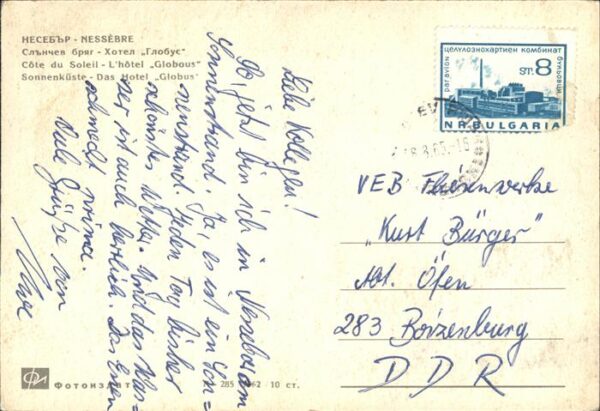 НЕСЕБЪР - NESSÈBRE
Слънчев бряг - Хотел „Глобус"
Côte du Soleil - L'hôtel „Globous"
Sonnenküste - Das Hotel „Globus"
par avion
целулознохартиен комбинат
ст. 8
N R. BULGARIA
Liebe Kollegen!
So, jetzt bin ich in Nessebar am
Sonnenstrand. Ja, es ist ein Son=
nenstrand. Jeden Tag bisher
schönstes Wetter. Und das Was=
ser ist auch herrlich. Das Essen
schmeckt prima.
Viele Grüße von
VEB Fliesenwerke
„Kurt Bürger"
Abt. Öfen
283 Boizenburg
D D R
Фотоиздат
285
62 10 ст.